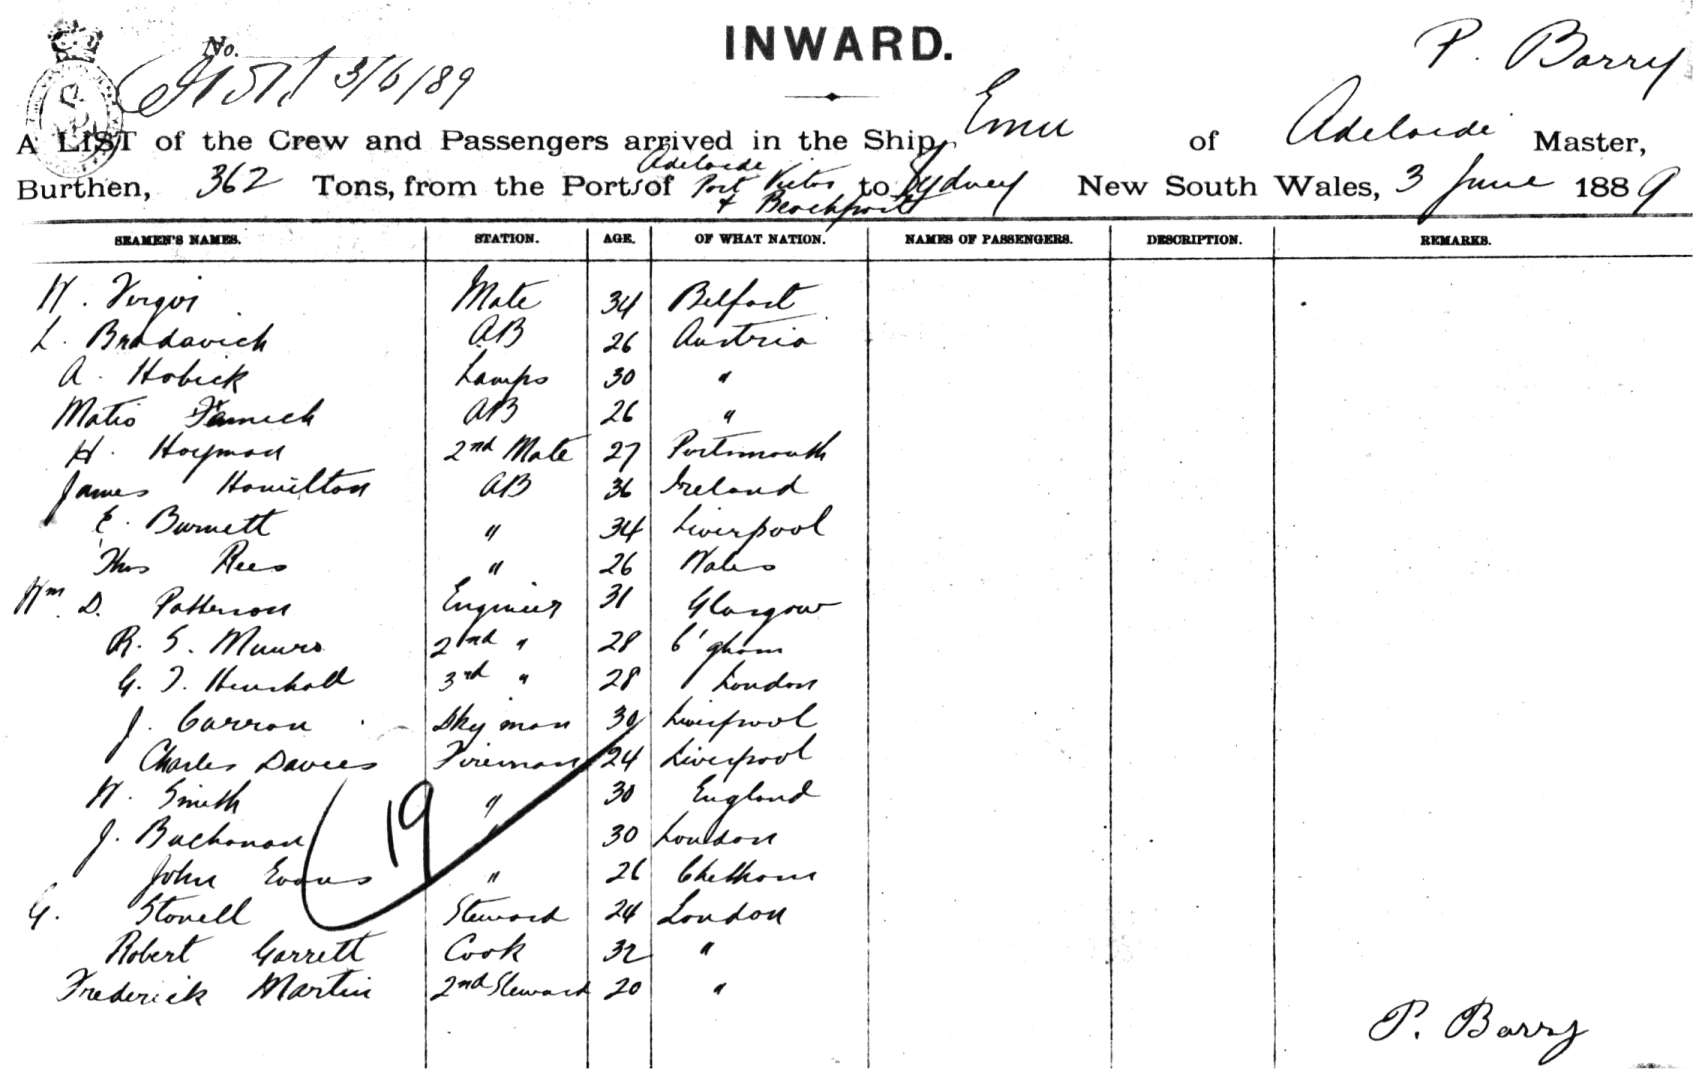 INWARD.
P. Barry
No.
3/6/89
A LIST of the Crew and Passengers arrived in the Ship, Emu of Adelaide Master,
Adelaide
Burthen, 362 Tons, from the Ports of Port Victor to Sydney New South Wales, 3 June 1889
& Beachport
SEAMEN'S NAMES. STATION. AGE. OF WHAT NATION. NAMES OF PASSENGERS. DESCRIPTION. REMARKS.
W. Mate 34 Belfast
L. Bradavich AB 26 Austria
A. Hobick Lamps 30 "
Matio AB 26 "
H. Hoyman 2nd Mate 27 Portsmouth
James Hamilton AB 36 Ireland
E. Burnett " 34 Liverpool
Thos Rees " 26 Wales
Wm D. Patterson Engineer 31 Glasgow
R. S. Munro 2nd " 28 B'gham
G. T. Henshall 3rd " 28 London
J. Carron Dky man 30 Liverpool
Charles Davies Fireman 24 Liverpool
W. Smith " 30 England
J. Buchanan " 30 London
John Evans " 26 Chatham
G. Stovell Steward 24 London
Robert Garrett Cook 32 "
Frederick Martin 2nd Steward 20 "
19
P. Barry